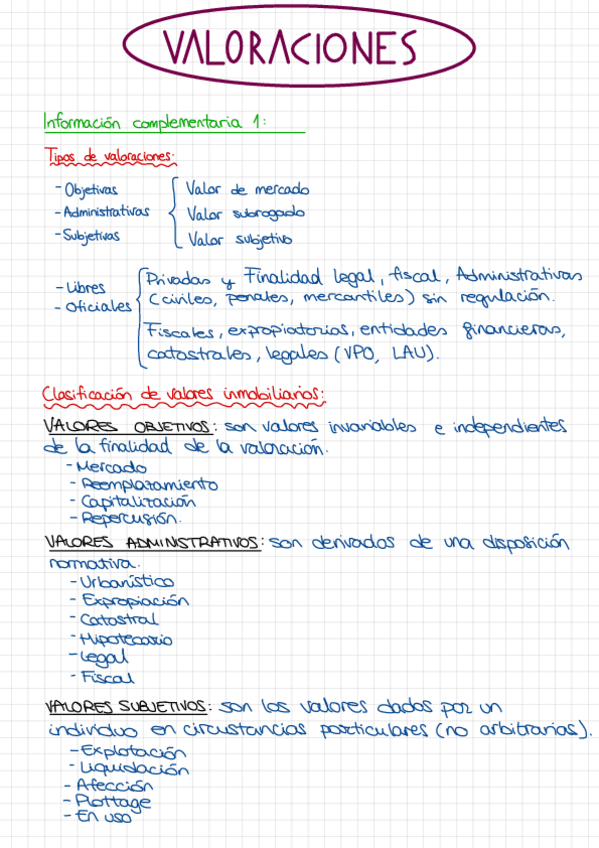 VALORACIONES
Información complementaria 1:
Tipos de valoraciones:
- Objetivas
- Administrativas
- Subjetivas
Valor de mercado
Valor subrogado
Valor subjetivo
- Libres
- Oficiales
Privadas y Finalidad legal, fiscal, Administrativas
(civiles, penales, mercantiles) sin regulación.
Fiscales, expropiatorias, entidades financieras,
catastrales, legales (VPO, LAU).
Clasificación de valores inmobiliarios:
VALORES OBJETIVOS: son valores invariables e independientes
de la finalidad de la valoración.
- Mercado
- Reemplazamiento
- Capitalización
- Repercusión.
VALORES ADMINISTRATIVOS: son derivados de una disposición
normativa.
- Urbanístico
- Expropiación
- Catastral
- Hipotecario
- Legal
- Fiscal
VALORES SUBJETIVOS: son los valores dados por un
individuo en circustancias particulares (no arbitrarias).
- Explotación
- Liquidación
- Afección
- Plottage
- En uso